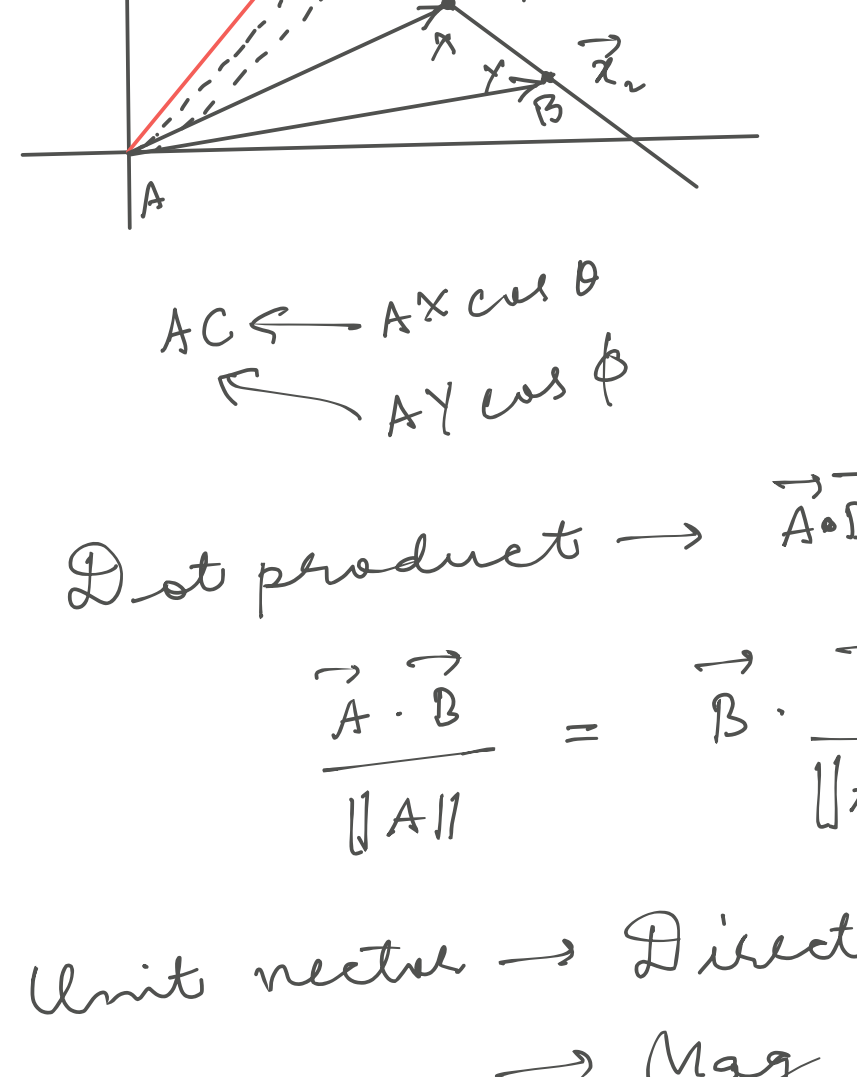 X
Y
B
x₂
A
AC ← AX cos θ
AY cos ϕ
Dot product → A•
A · B = B ·
||A|| ||
Unit vector → Direct
→ Mag